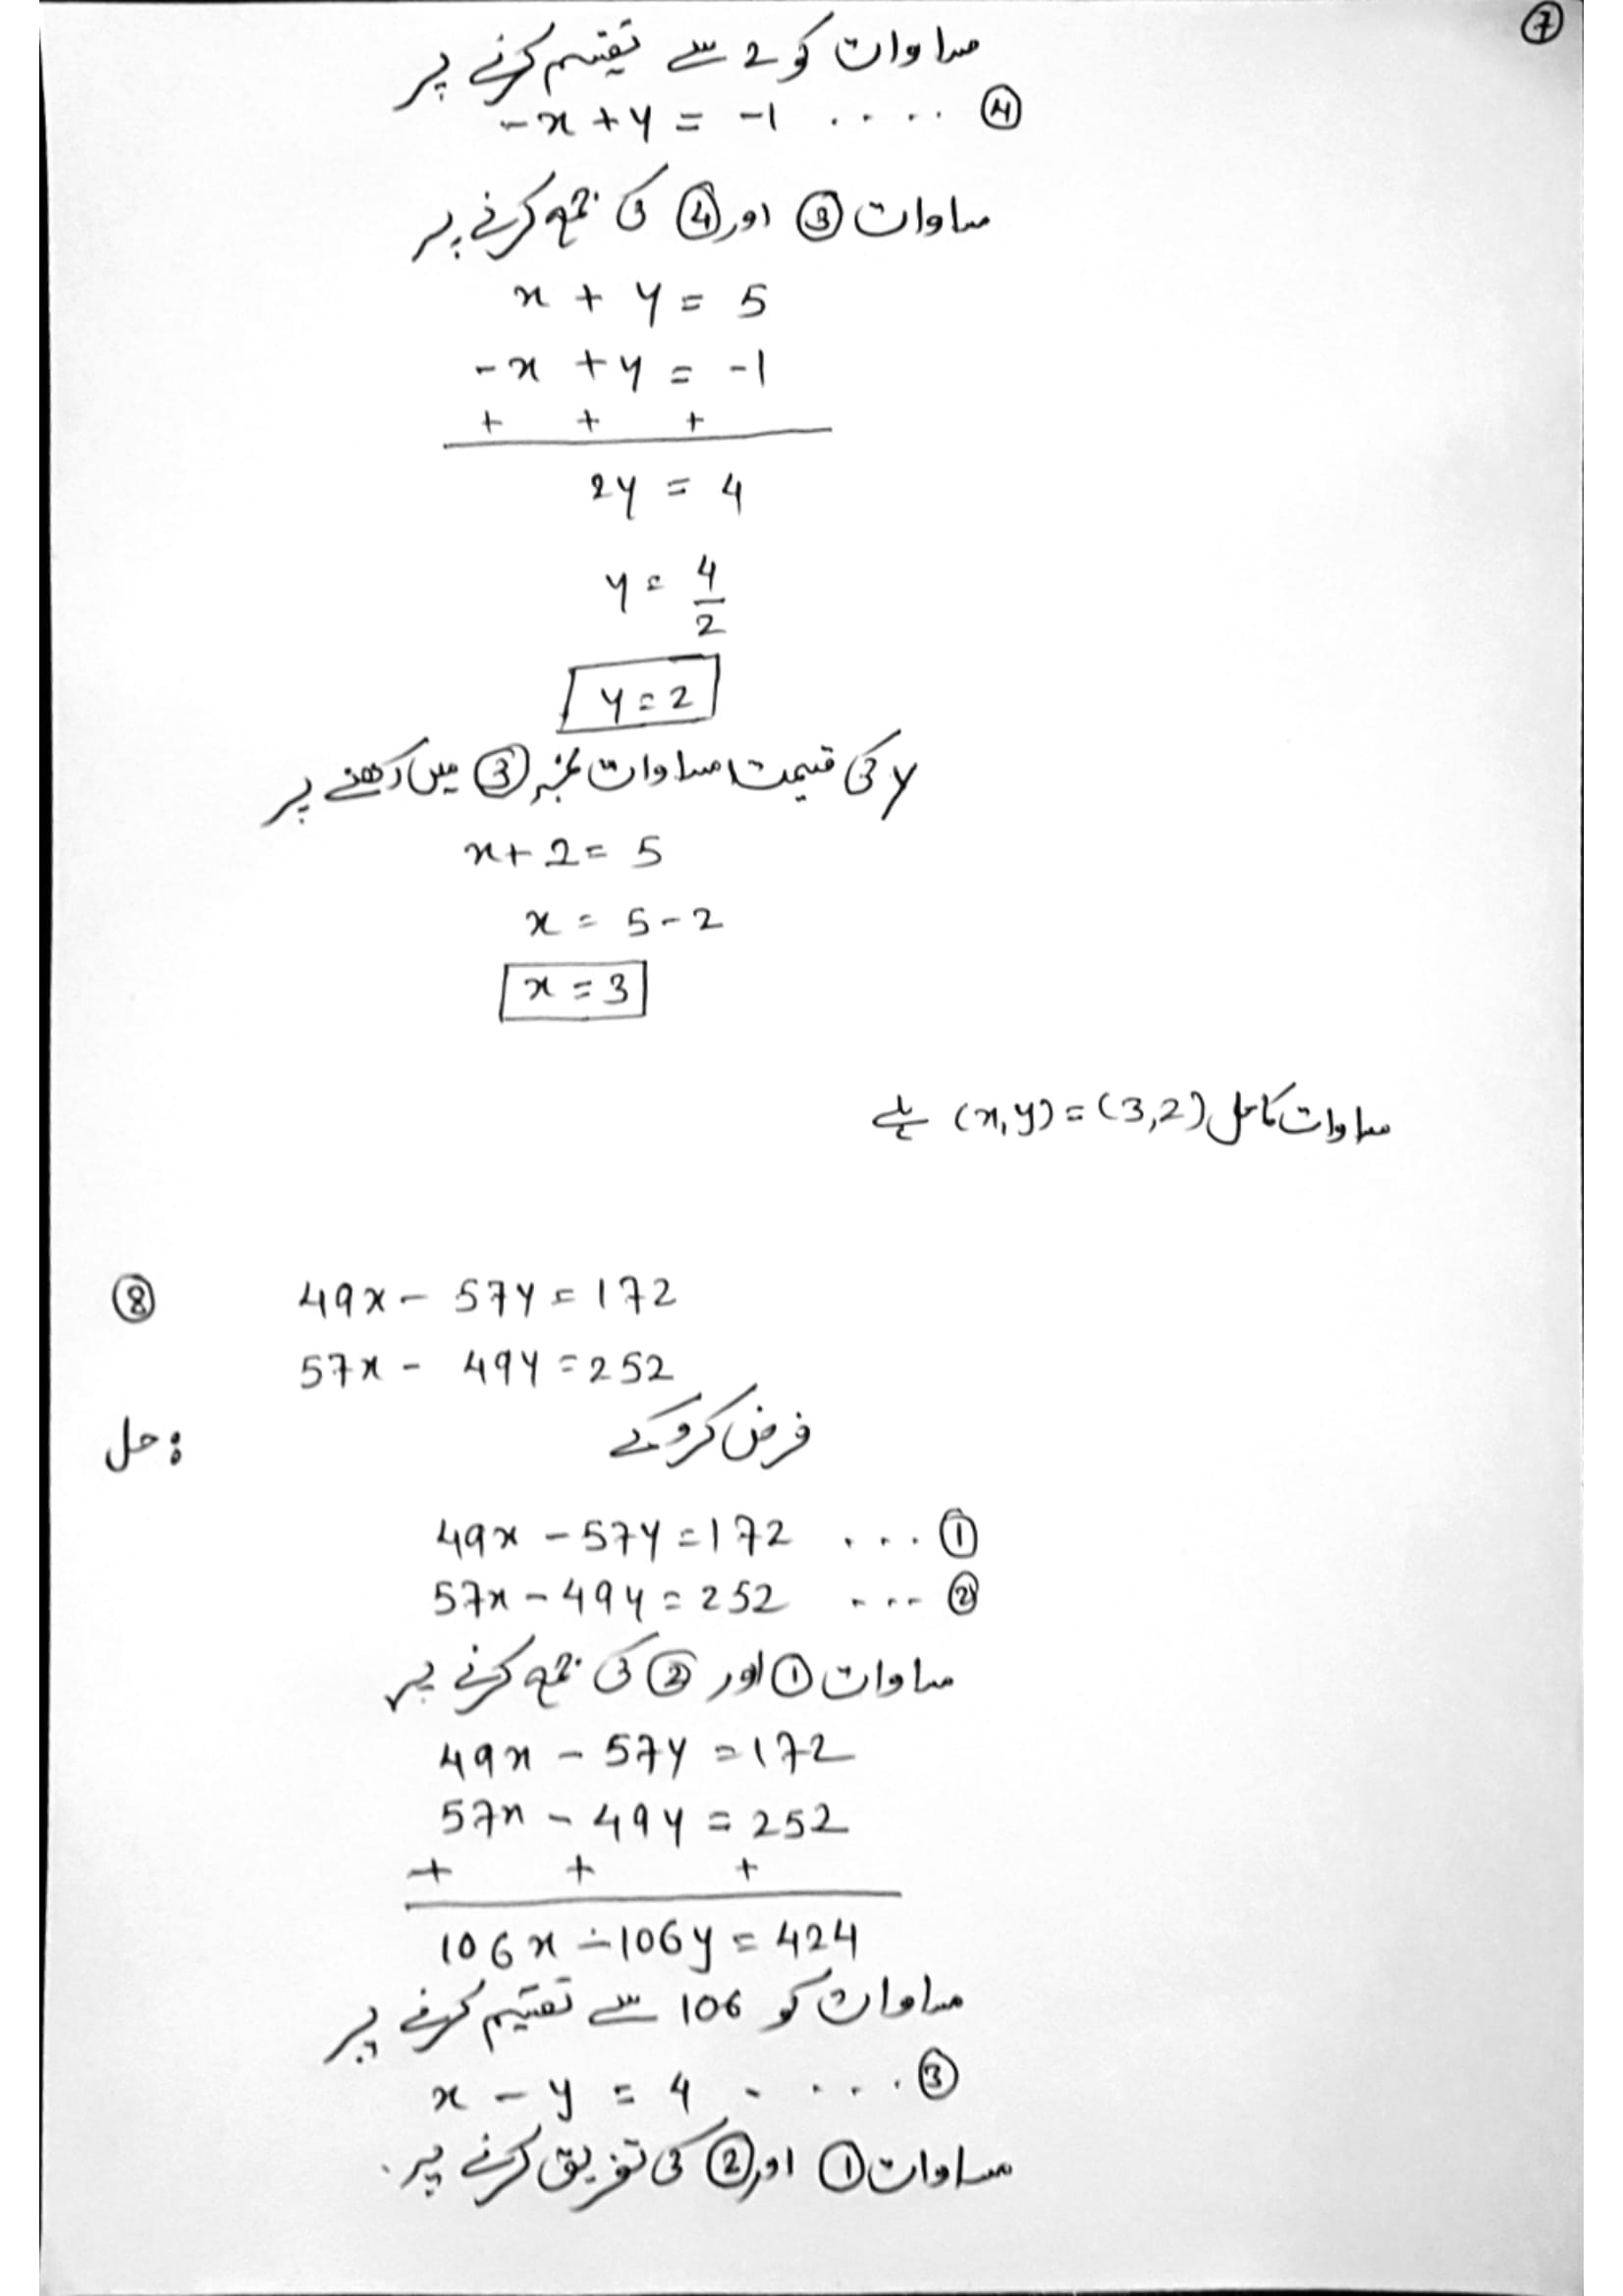 7
مساوات کو 2 سے تقسیم کرنے پر
-x + y = -1 ..... 4
مساوات 3 اور 4 کی جمع کرنے پر
x + y = 5
-x + y = -1
+ + +
2y = 4
y = 4/2
y = 2
y کی قیمت مساوات نمبر 3 میں رکھنے پر
x + 2 = 5
x = 5 - 2
x = 3
مساوات کا حل (x, y) = (3, 2) ہے
8 49x - 57y = 172
57x - 49y = 252
حل:
فرض کرو کے
49x - 57y = 172 ... 1
57x - 49y = 252 ... 2
مساوات 1 اور 2 کی جمع کرنے پر
49x - 57y = 172
57x - 49y = 252
+ + +
106x - 106y = 424
مساوات کو 106 سے تقسیم کرنے پر
x - y = 4 .... 3
مساوات 1 اور 2 کی تفریق کرنے پر.